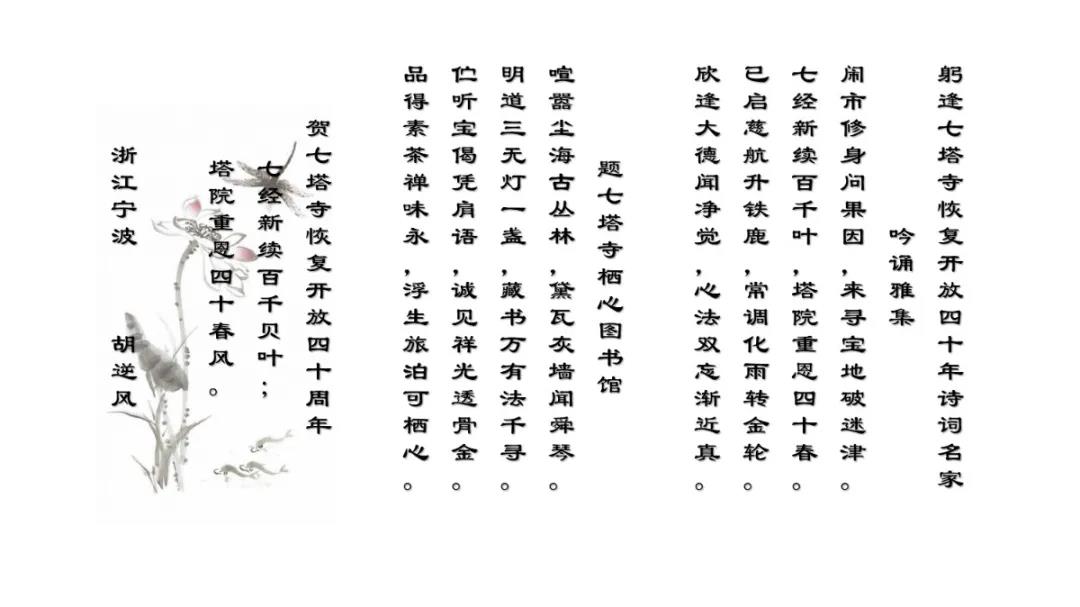 躬逢七塔寺恢复开放四十年诗词名家
吟诵雅集
闹市修身问果因,来寻宝地破迷津。
七经新续百千叶,塔院重恩四十春。
已启慈航升铁鹿,常调化雨转金轮。
欣逢大德闻净觉,心法双忘渐近真。
题七塔寺栖心图书馆
喧嚣尘海古丛林,黛瓦灰墙闻舜琴。
明道三无灯一盏,藏书万有法千寻。
伫听宝偈凭肩语,诚见祥光透骨金。
品得素茶禅味永,浮生旅泊可栖心。
贺七塔寺恢复开放四十周年
七经新续百千贝叶;
塔院重恩四十春风。
浙江宁波 胡逆风